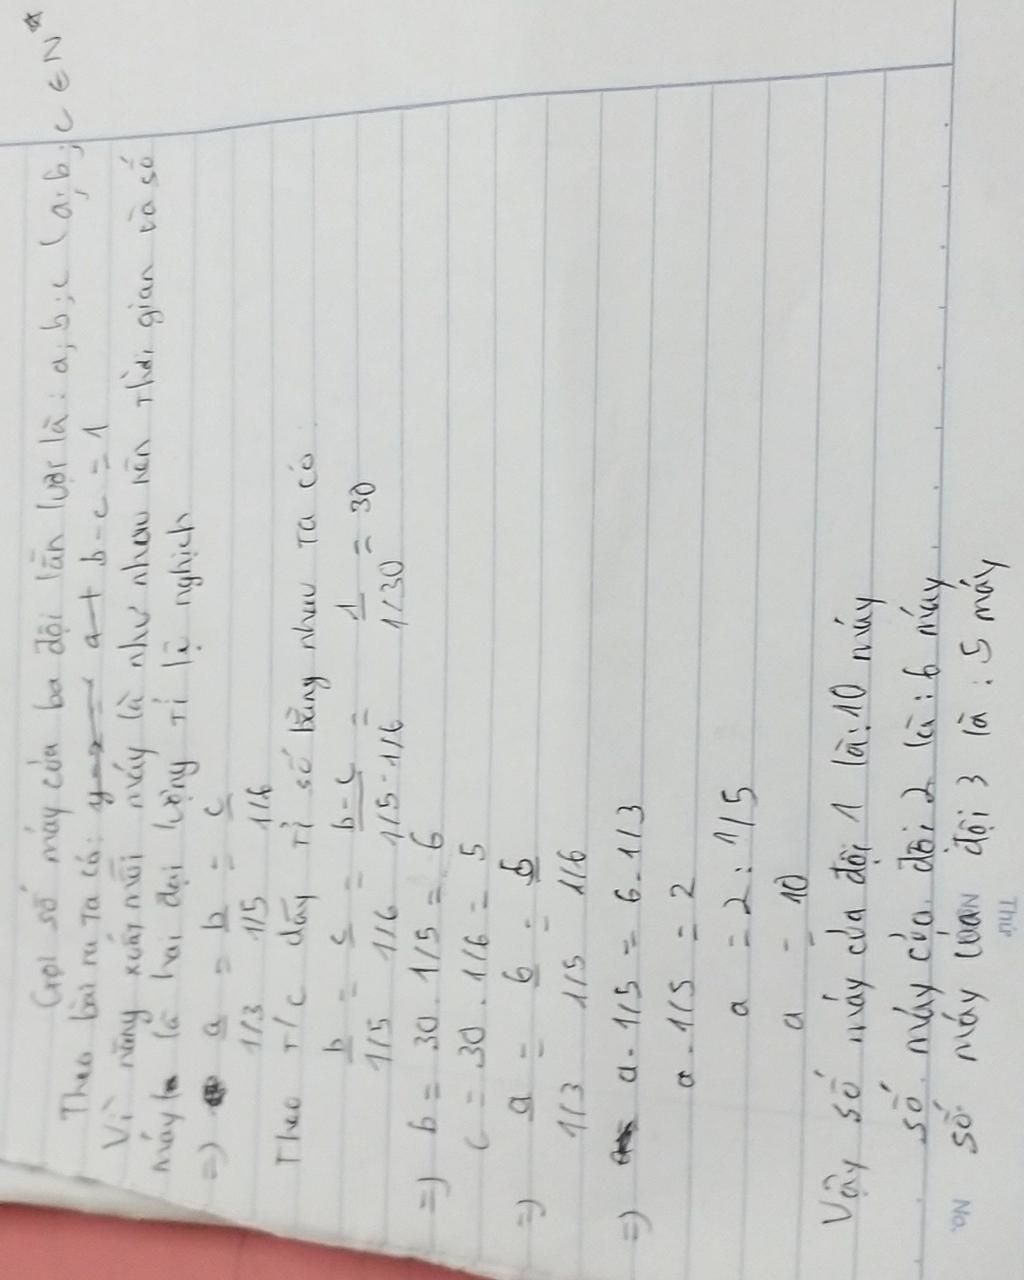 Gọi số máy của ba đội lần lượt là : a; b; c (a; b; c ∈ N*
Theo bài ra ta có: a + b - c = 1
Vì năng xuất mỗi máy là như nhau nên thời gian và số
máy là hai đại lượng tỉ lệ nghịch
=) a = b = c
1/3 1/5 1/6
Theo T/c dãy tỉ số bằng nhau ta có
b = c = b - c = 1 = 30
1/5 1/6 1/5 - 1/6 1/30
=) b = 30 . 1/5 = 6
c = 30 . 1/6 = 5
=) a = 6 = 5
1/3 1/5 1/6
=) a . 1/5 = 6 . 1/3
a . 1/5 = 2
a = 2 : 1/5
a = 10
Vậy số máy của đội 1 là: 10 máy
số máy của đội 2 là : 6 máy
số máy của đội 3 là : 5 máy
No.
Thứ N